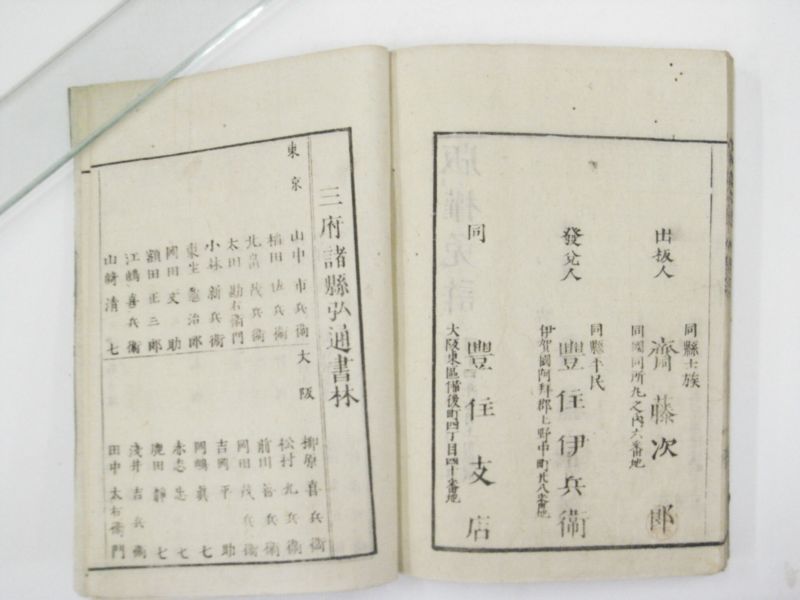 出板人
同縣士族
齋藤次郎
同國同所九之内六番地
發兌人
同縣平民
豐住伊兵衞
伊賀國阿拜郡上野中町廿八番地
同
豐住支店
大阪東區備後町四丁目四十番地
三府諸縣弘通書林
東京
山中市兵衞
稻田佐兵衞
北畠茂兵衞
太田勘右衞門
小林新兵衞
東生龜治郎
岡田文助
額田正三郎
江嶋喜兵衞
山﨑清七
大阪
柳原喜兵衞
松村九兵衞
前川善兵衞
岡田茂兵衞
吉岡平助
岡嶋眞七
赤志忠七
鹿田靜七
淺井吉兵衞
田中太右衞門
版權免許